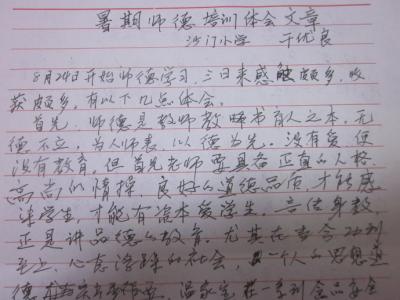 暑期师德培训体会文章
沙门小学 于优良
8月24日开始师德学习,三日来感触颇多,收
获颇多,有以下几点体会。
首先,师德是教师教书育人之本,无
德不立,为人师表,以德为先。没有爱,便
没有教育,但首先老师要具备正直的人格,
高尚的情操,良好的道德品质,才能感
染学生,才能有资本爱学生。言传身教,
正是讲品德的教育,尤其在当今功利
至上,心态浮躁的社会,一个人的思想道
德
温家宝在一系列食品安全